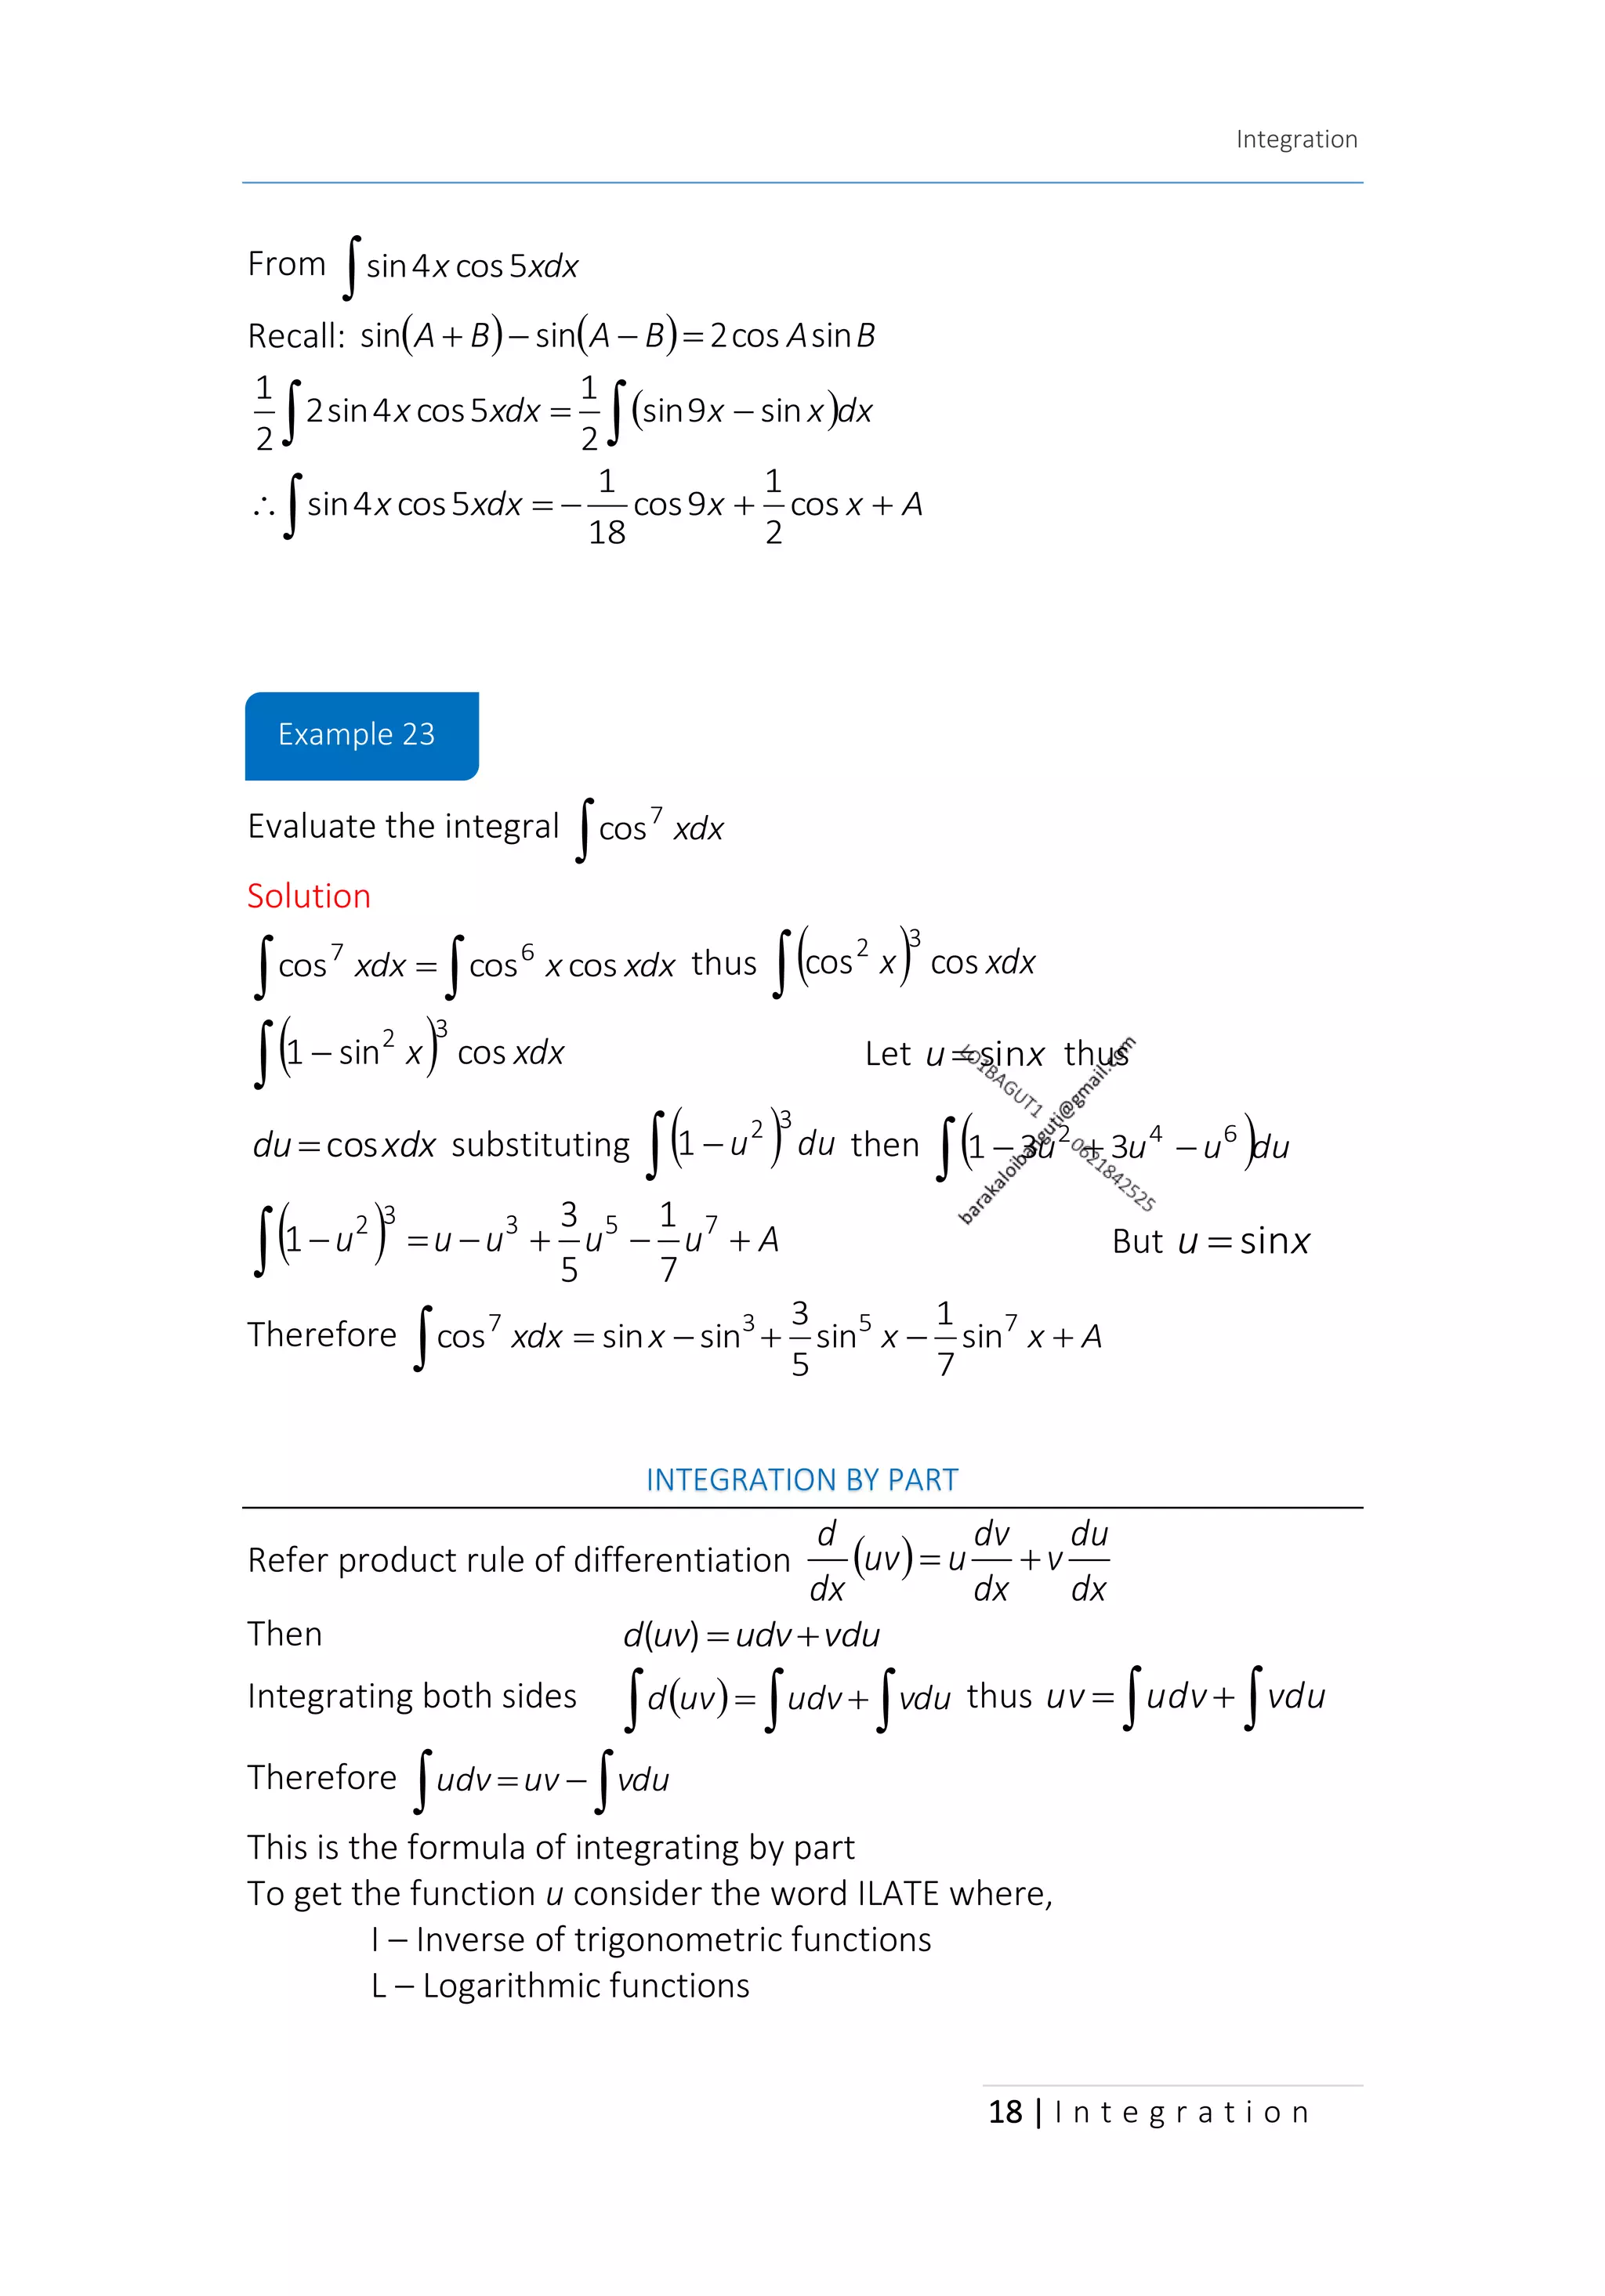 Integration
From ∫ sin 4x cos 5xdx
Recall: sin(A + B) − sin(A − B) = 2cos A sin B
1/2 ∫ 2 sin 4x cos 5xdx = 1/2 ∫ (sin 9x − sin x)dx
∴ ∫ sin 4x cos 5xdx = − 1/18 cos 9x + 1/2 cos x + A
Example 23
Evaluate the integral ∫ cos⁷ xdx
Solution
∫ cos⁷ xdx = ∫ cos⁶ x cos xdx thus ∫ (cos² x)³ cos xdx
∫ (1 − sin² x)³ cos xdx Let u = sinx thus
du = cosxdx substituting ∫ (1 − u²)³ du then ∫ (1 − 3u² + 3u⁴ − u⁶)du
LO1BAGUT1
barakaloibanguti@gmail.com
0621842525
∫ (1 − u²)³ = u − u³ + 3/5 u⁵ − 1/7 u⁷ + A But u = sinx
Therefore ∫ cos⁷ xdx = sin x − sin³ + 3/5 sin⁵ x − 1/7 sin⁷ x + A
INTEGRATION BY PART
Refer product rule of differentiation d/dx (uv) = u dv/dx + v du/dx
Then d(uv) = udv + vdu
Integrating both sides ∫ d(uv) = ∫ udv + ∫ vdu thus uv = ∫ udv + ∫ vdu
Therefore ∫ udv = uv − ∫ vdu
This is the formula of integrating by part
To get the function u consider the word ILATE where,
I – Inverse of trigonometric functions
L – Logarithmic functions
18 | Integration